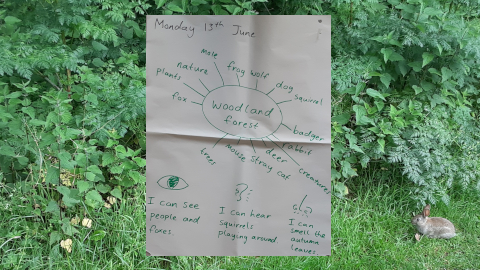 Monday 13th June
mole
nature
frog
wolf
dog
squirrel
plants
fox
Woodland
forest
badger
rabbit
creatures
deer
stray cat
mouse
trees
I can see
people and
foxes.
I can hear
squirrels
playing around.
I can
smell the
autumn
leaves.